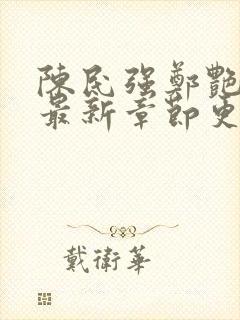 陳民强鄭艷
最新章節更
戴衛華